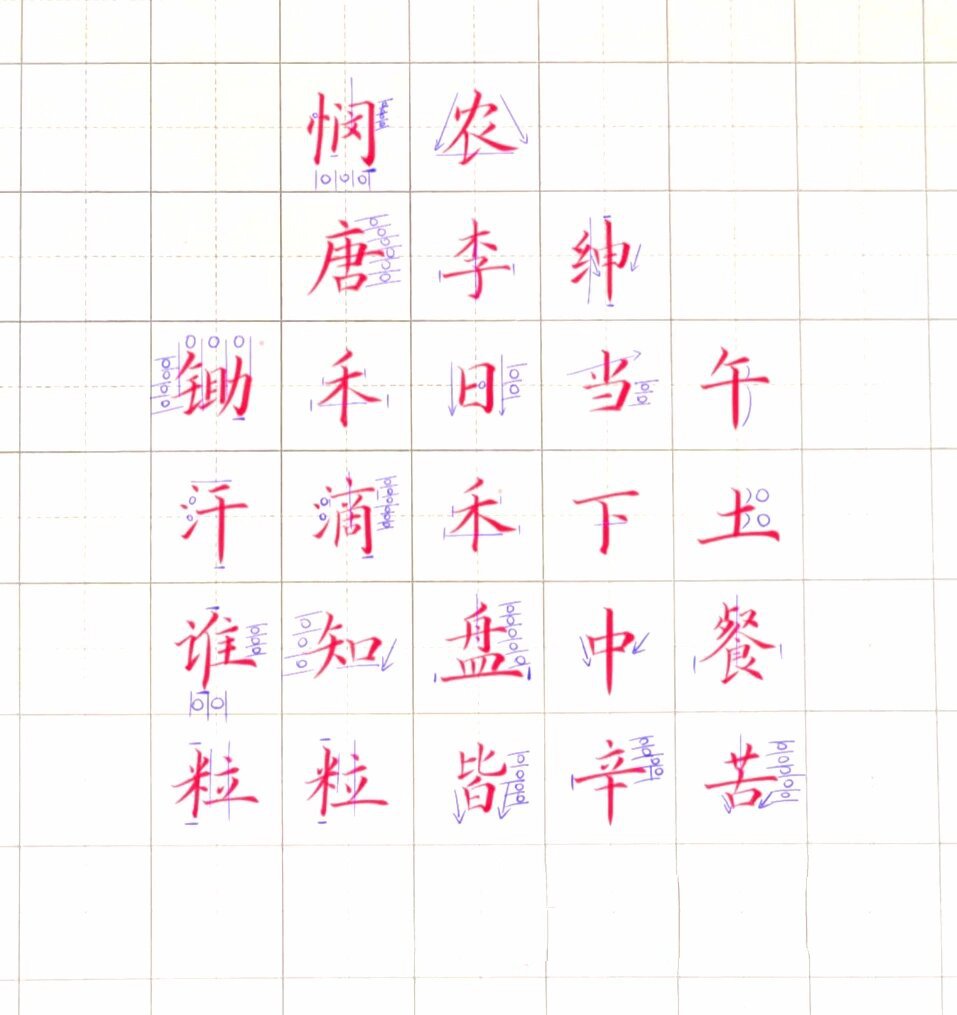 悯农
唐李绅
锄禾日当午
汗滴禾下土
谁知盘中餐
粒粒皆辛苦